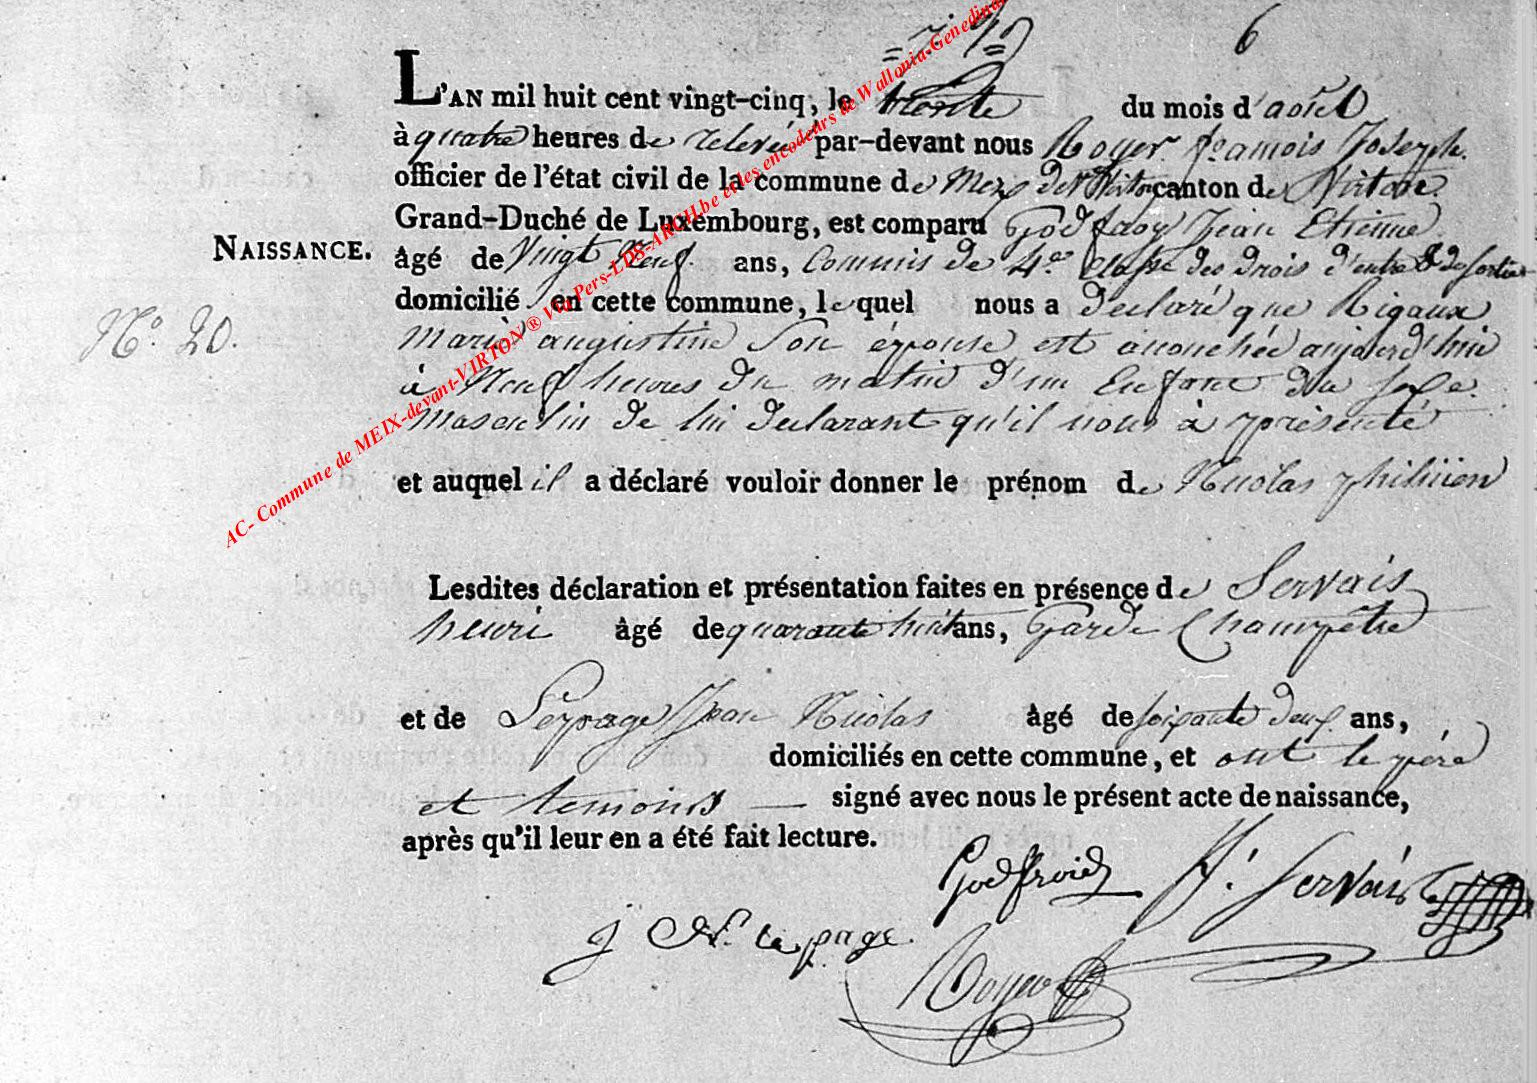 6
L'AN mil huit cent vingt-cinq, le trente du mois d'août
à quatre heures de relevée par-devant nous Royer françois Joseph
officier de l'état civil de la commune de Meix devt Virton canton de Virton
Grand-Duché de Luxembourg, est comparu Godfroy Jean Etienne
NAISSANCE. âgé de Vingt Neuf ans, Commis de 4e Classe des droits d'entré & de sortie
domicilié en cette commune, lequel nous a declaré que Rigaux
N.o 20. Marie augustine Son épouse est accouchée aujourd'hui
à Neuf heures du matin d'un Enfant du sexe
Masculin de lui declarant qu'il nous à présenté
et auquel il a déclaré vouloir donner le prénom de Nicolas
Lesdites déclaration et présentation faites en présence de Servais
henri âgé de quarante huit ans, Garde Champêtre
et de Lepage Jean Nicolas âgé de soixante deux ans,
domiciliés en cette commune, et ont le père
et temoins signé avec nous le présent acte de naissance,
après qu'il leur en a été fait lecture.
Godfroid H. Servais
J N. Lepage
Royer
AC- Commune de MEIX-devant-VIRTON ® Via Pers-LDS-ARCH.be et les encodeurs de Wallonia-Genedinan